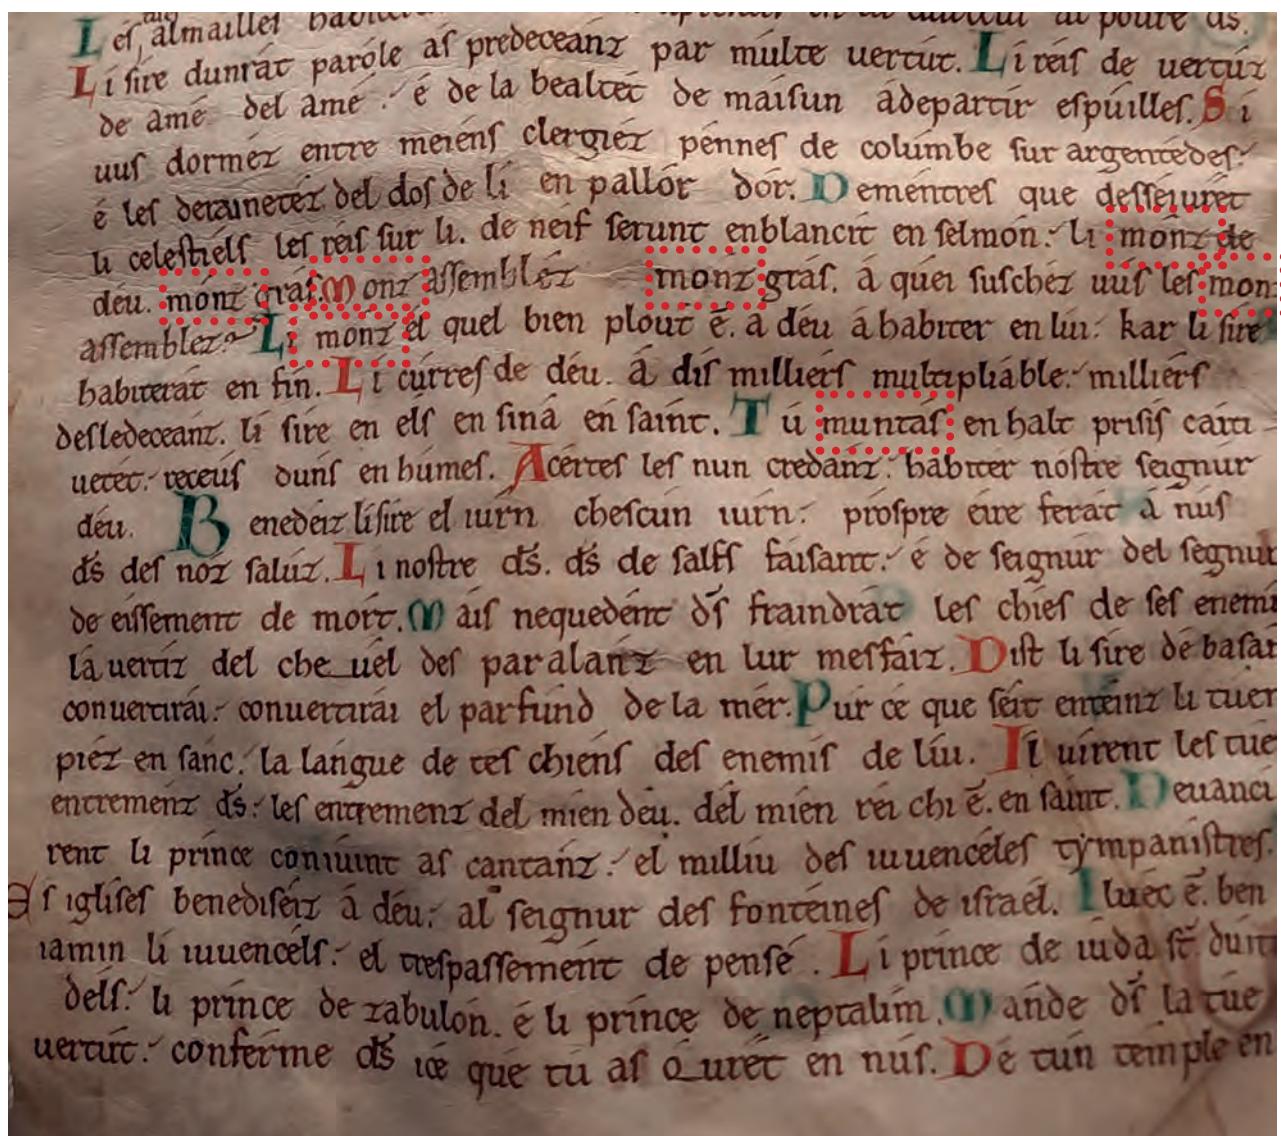 Les almailles
Li sire dunrát paróle as predeceanz par múlte uertut. Li reis de uertúz
de amé del amé. é de la bealtét de maisun á departír espúilles. Si
uus dorméz entre meiéns clergiéz pénnes de colúmbe surargentedes.
é les deraineteiz del dos de li en pallór dór. Deméntres que desséiurét
li celestiéls les réis sur li. de neif serunt enblanciít en selmon. li mónz de
déu. mónz grás. Monz assembléz mónz grás. á quei suschéz uús les mon
assemblez. Li monz el quel bien plout ē. a déu á habiter en lúi. kar li sire
habiterát en fin. Li cúrres de déu. á dís milliers multipliáble. milliérs
desledeceanz. li sire en els en siná en saínt. Tú muntás en halt prisís caiti
uetét. receús duns en húmes. Acértes les nun credánz. habiter nóstre seignur
déu. Benedeiz li sire el iurn chescun iurn. prospre eire ferát á nús
d̄s des nóz salúz. Li nostre d̄s. d̄s de salfs faisant. é de seignur del segnur
de eissement de mort. Máis nequedént d̄s fraindrát les chiés de ses enemi
lá uertiz del cheuél des paralánz en lur mesfaiz. Dist li sire dé basan
conuertirái. conuertirái el parfúnd de la mér. Púr cé que séit enteinz li tuen
piéz en sanc. la langue de tes chiéns des enemis de lúi. Il uírent les tue
entremenz d̄s. les entremenz del mien déu. del mién réi chi ē. en saínt. Deuanci
rent li prince coniúint as cantánz. el milliu des iuuencéles tympanístres.
Es iglises benediséiz á déu. al seignur des fontéines de israél. Iluéc ē. ben
iamin li iuuencéls. el trespassemént de pensé. Li prince de iuda st̄. duít
dels. li prínce de zabulón. é li prínce de neptalím. Mánde d̄s la túe
uertút. conférme d̄s icé que tú as óurét en nús. Dé tún témple en